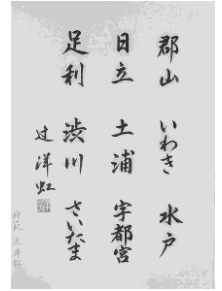 郡山 いわき 水戸
日立 土浦 宇都宮
足利 渋川 さいたま
辻洋虹